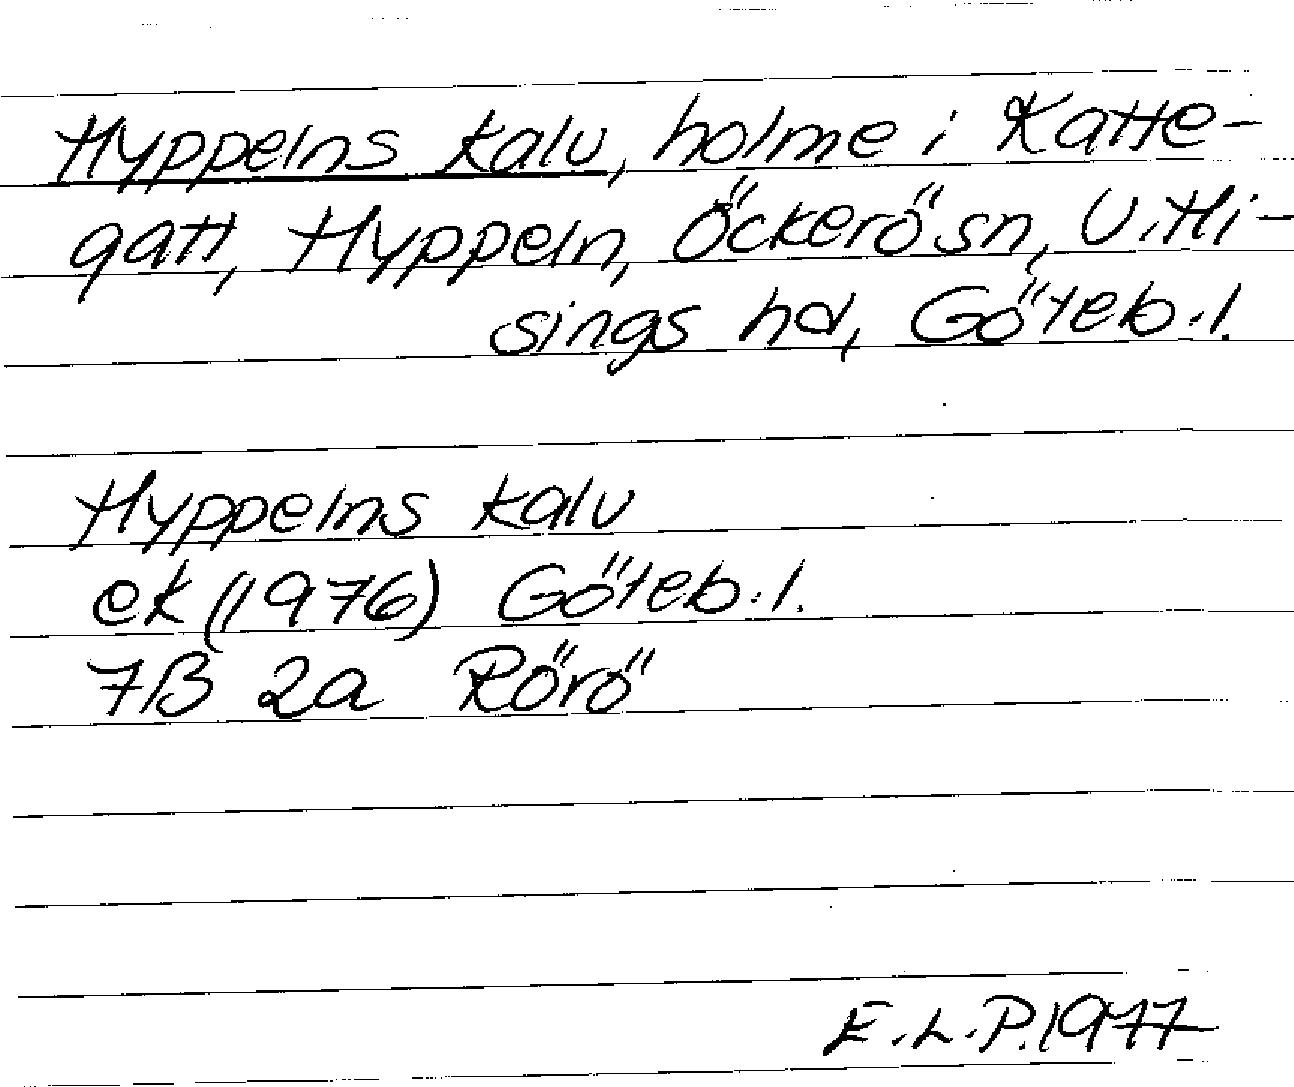 Hyppelns kalv, holme i Katte-
gatt, Hyppeln, Öckerö sn, V. Hi-
sings hd, Göteb.l.
Hyppelns kalv
ek (1976) Göteb.l.
7B 2a Rörö
E.L.P. 1977